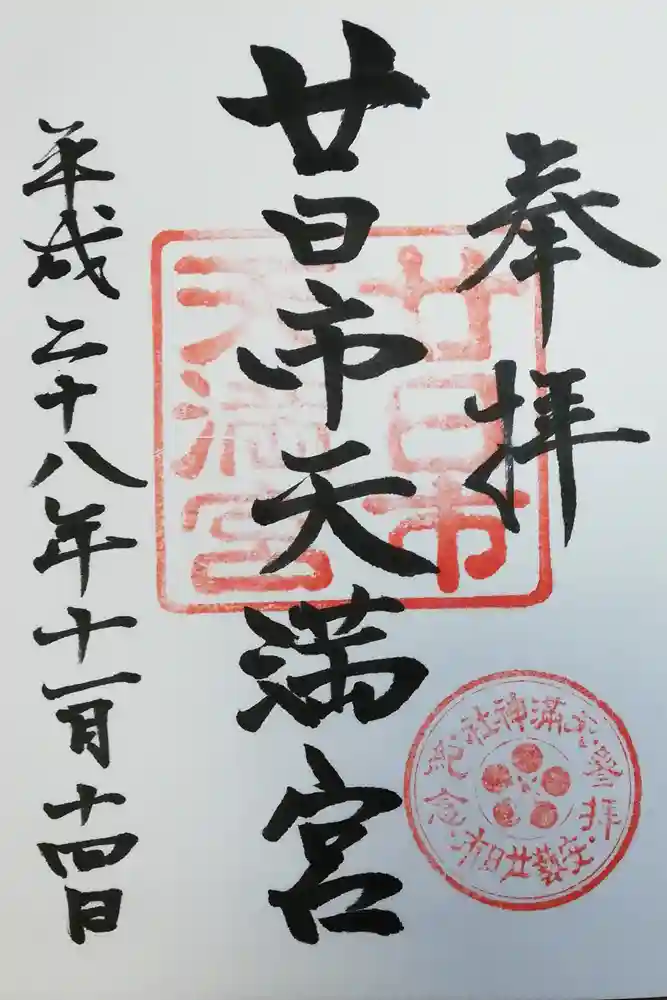 奉拝
廿日市天満宮
平成二十八年十一月十四日
廿日市
天満宮
天満神社
參拝
紀念
安藝廿日市